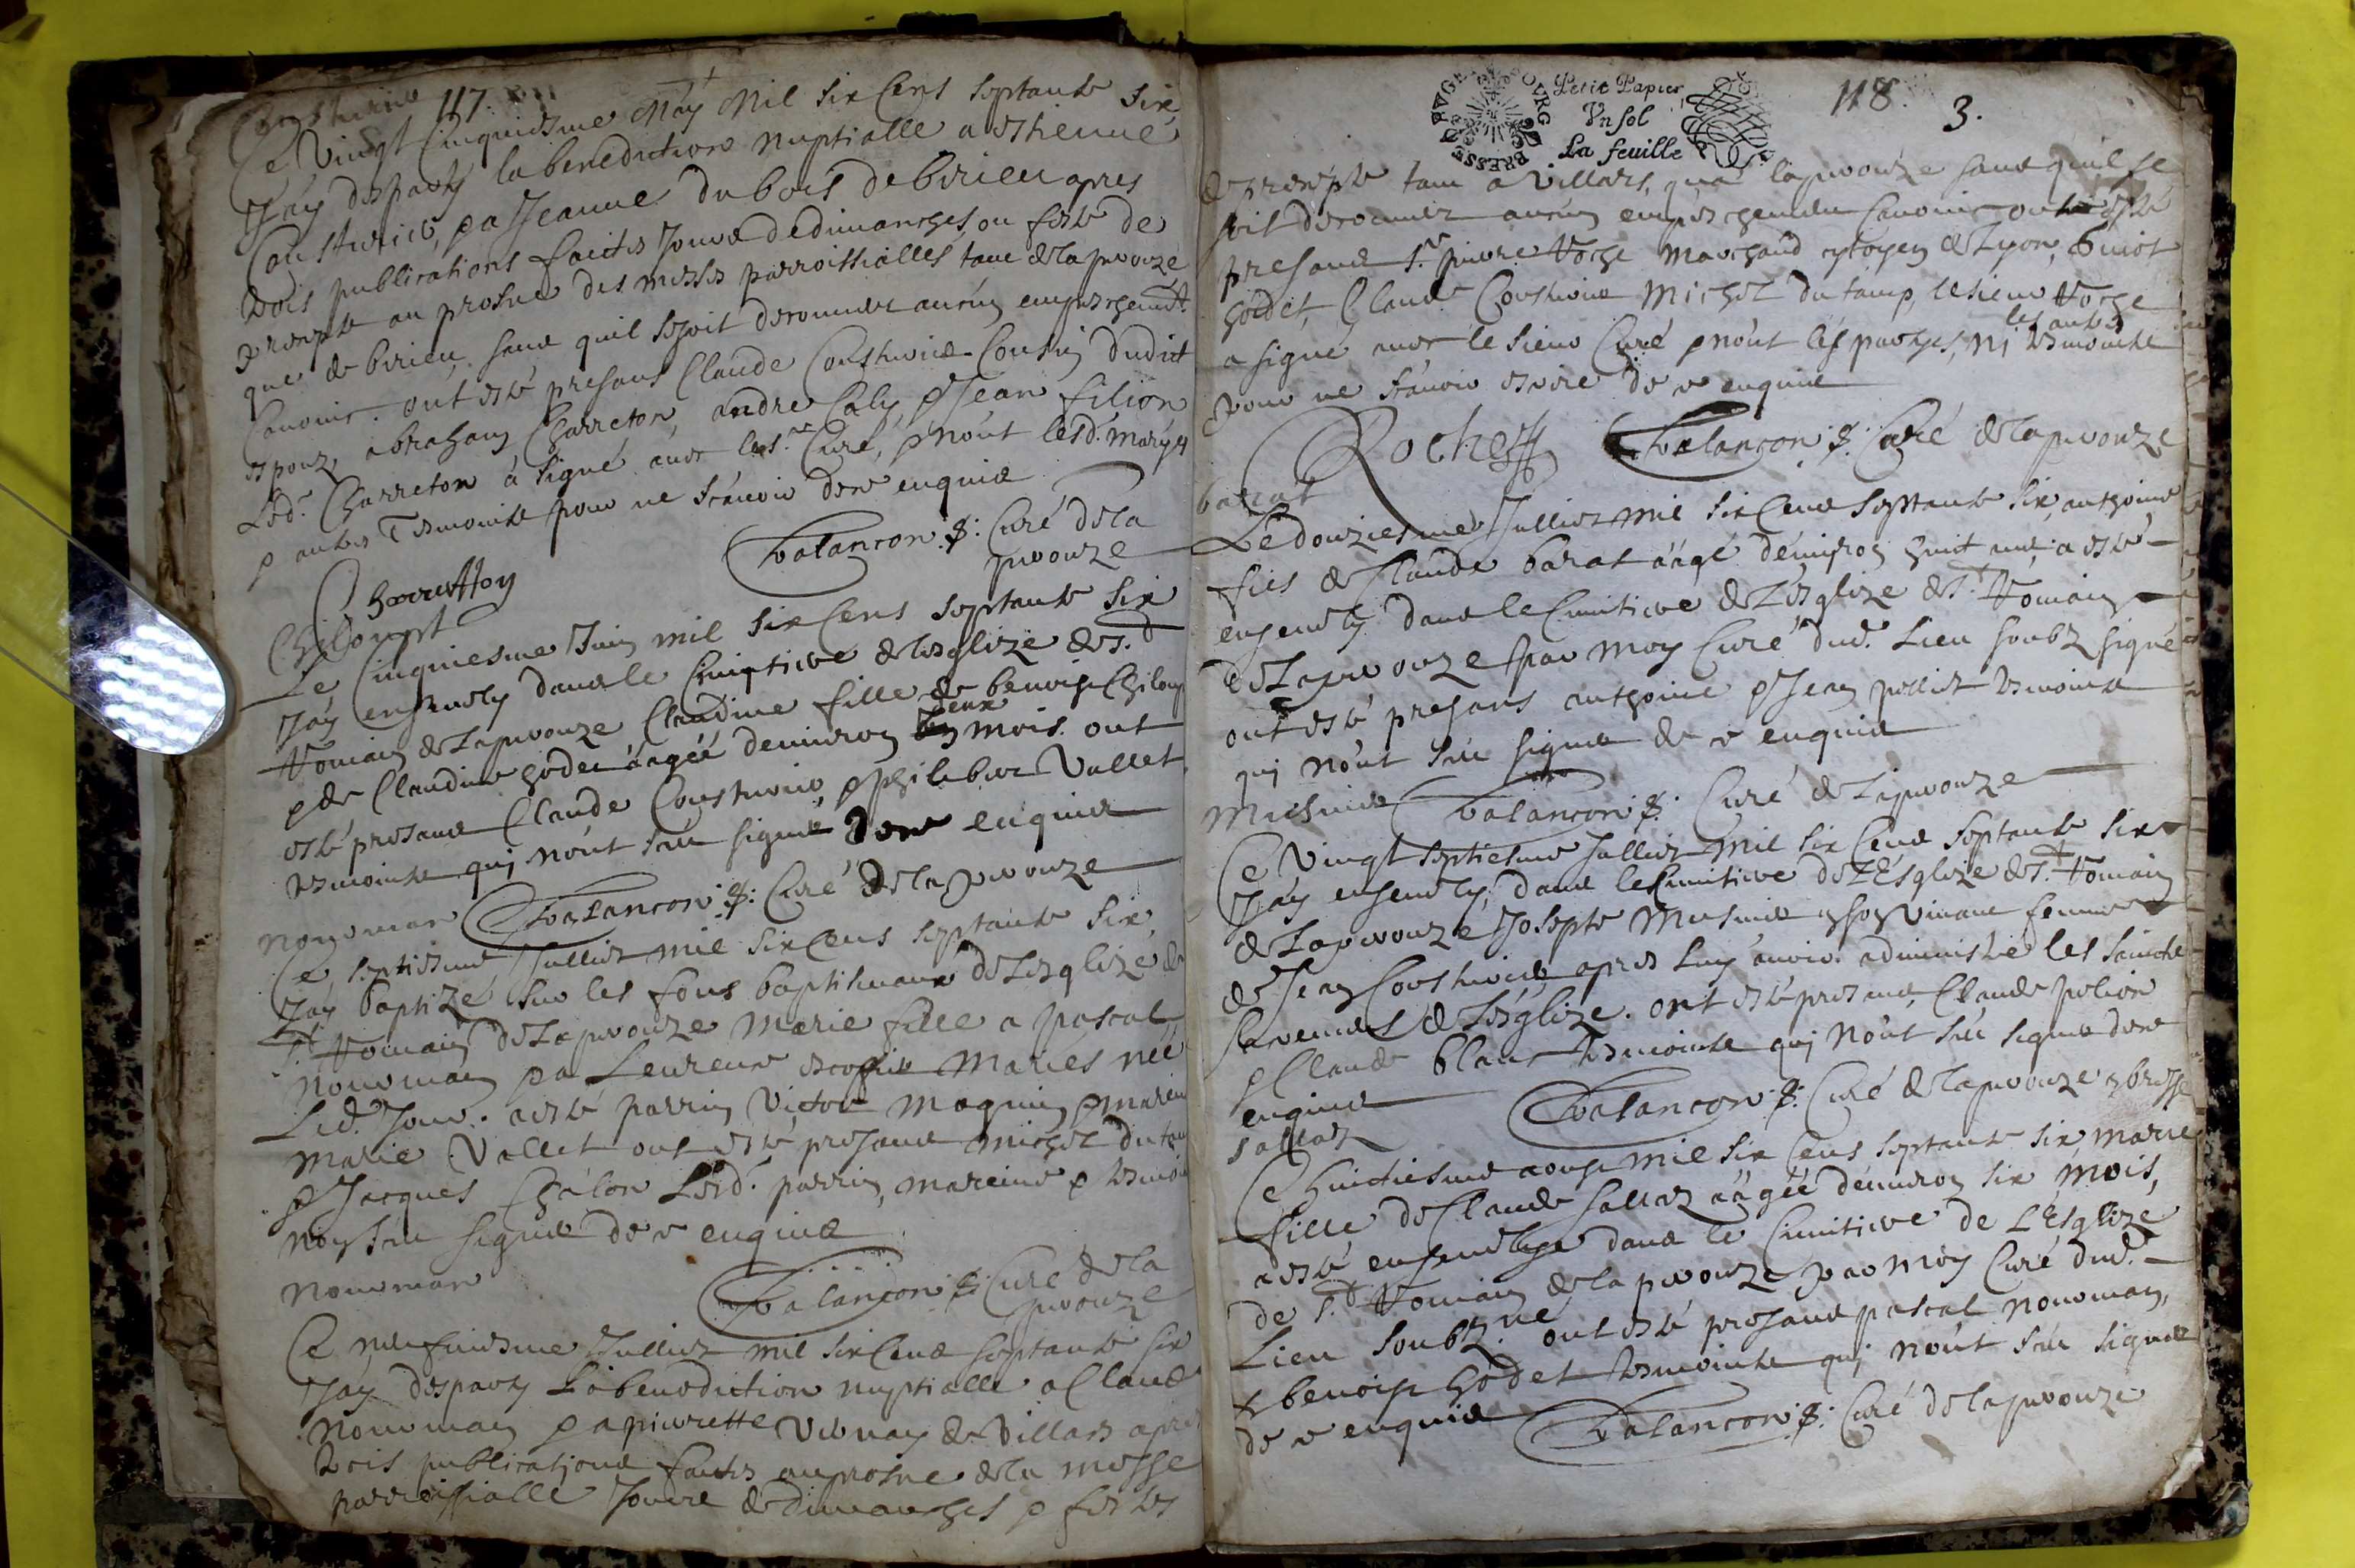 Cousturier 117.
Ce Vingt Cinquiesme May Mil six Cens septante six
J'ay desparty la benediction nuptialle a Esthienne
Cousturier, et a Jeanne du bois de birieu apres
trois publications faictes Jours de dimanches, ou feste de
precepte au prosne des messes parroissialles, tant de lapeyrouze
que de birieu, sans quil se soit descouvert aucun empeschem.t
Canonic. ont esté presans Claude Cousturier Cousin dudict
espoux, abraham Charreton, andre Caly, et Jean filion
Led.t Charreton à signé avec le s.r Curé, et nont lesd. mariés
et autres Tesmoins pour ne scavoir de ce enquis
Charretton
Balancon p: Curé de la
peyrouze
Chiloup
Le Cinquiesme Juin mil six Cens septante six
J'ay ensevely dans le Cimitiere de l'esglize de S.t
Romain de Lapeyrouze Claudine fille de benoist Chiloup
et de Claudine godet aagée denviron deux mois. ont
esté presans Claude Cousturier, et philibert Vallet
tesmoins qui n'ont sceu signer de ce enquis
Balancon p: Curé de la peyrouze
nonoman
Ce septiesme Juillet mil six Cens septante six,
J'ay baptizé sur les fons baptismaux de L'esglize de
S.t Romain de Lapeyrouze Marie fille a pascal
nonoman et a Leurence escoffie Mariés née
Led. Jour. a esté parrin Victor Maguin et mareine
Marie Vallet ont esté presans Michel du tamp
et Jacques Chilon Lesd. parrin, mareine et tesmoins
nont sceu signer de ce enquis
nonoman
Balancon p: Curé de la
peyrouze
Ce neufviesme Juillet mil six Cens septante six
J'ay desparty La benediction nuptialle a Claude
nonoman et a pierrette Vernay de Villars apres
trois publications faictes au prosne de la messe
parroissialle Jours de dimanches et festes
BRESSE
Petit Papier
Vn sol
La feuille
118. 3.
de precepte tant a Villars, qua lapeyrouze sans quil se
soit descouvert aucun empeschement Canonic ont esté
presans S.r pierre Roche marchand cytoyen de Lyon, benoist
godet, Claude Cousturier Michel du tamp, le sieur Roche
a signé avec le sieur Curé et nont les parties, ni les autres tesmoins
pour ne scavoir escrire de ce enquis
Roche
Balancon p: Curé de lapeyrouze
barat
Le douziesme Juillet mil six Cens septante six, anthoine
fils de Claude barat aagé d'environ huit ans, a esté
ensevely dans le Cimitiere de L'esglize de S.t Romain
de Lapeyrouze par moy Curé dud. Lieu soubz signé
ont esté presans anthoine et Jean pollet tesmoins
qui nont sceu signer de ce enquis
Balancon p: Curé de Lapeyrouze
Musnier
Ce Vingt septiesme Juillet mil six Cens septante six
J'ay ensevely, dans le Cimitiere de L'Esglize de S.t Romain
de Lapeyrouze Josepte Musnier en son vivant femme
de Jean Cousturier, apres Luy avoir administré les saincts
sacremens de L'esglize. ont esté presans, Claude polion
et Claude blanc tesmoins qui nont sceu signer de ce
enquis
Balancon p: Curé de lapeyrouze en bresse
sallaz
Ce huictiesme aoust mil six Cens septante six marie
fille de Claude sallaz aagée d'environ six mois,
a esté ensevelye dans le Cimitiere de L'Esglize
de S.t Romain de la peyrouze par moy Curé dud.
Lieu soubz.né ont esté presans pascal nonoman,
et benoist godet tesmoins qui n'ont sceu signer
de ce enquis
Balancon p: Curé de lapeyrouze